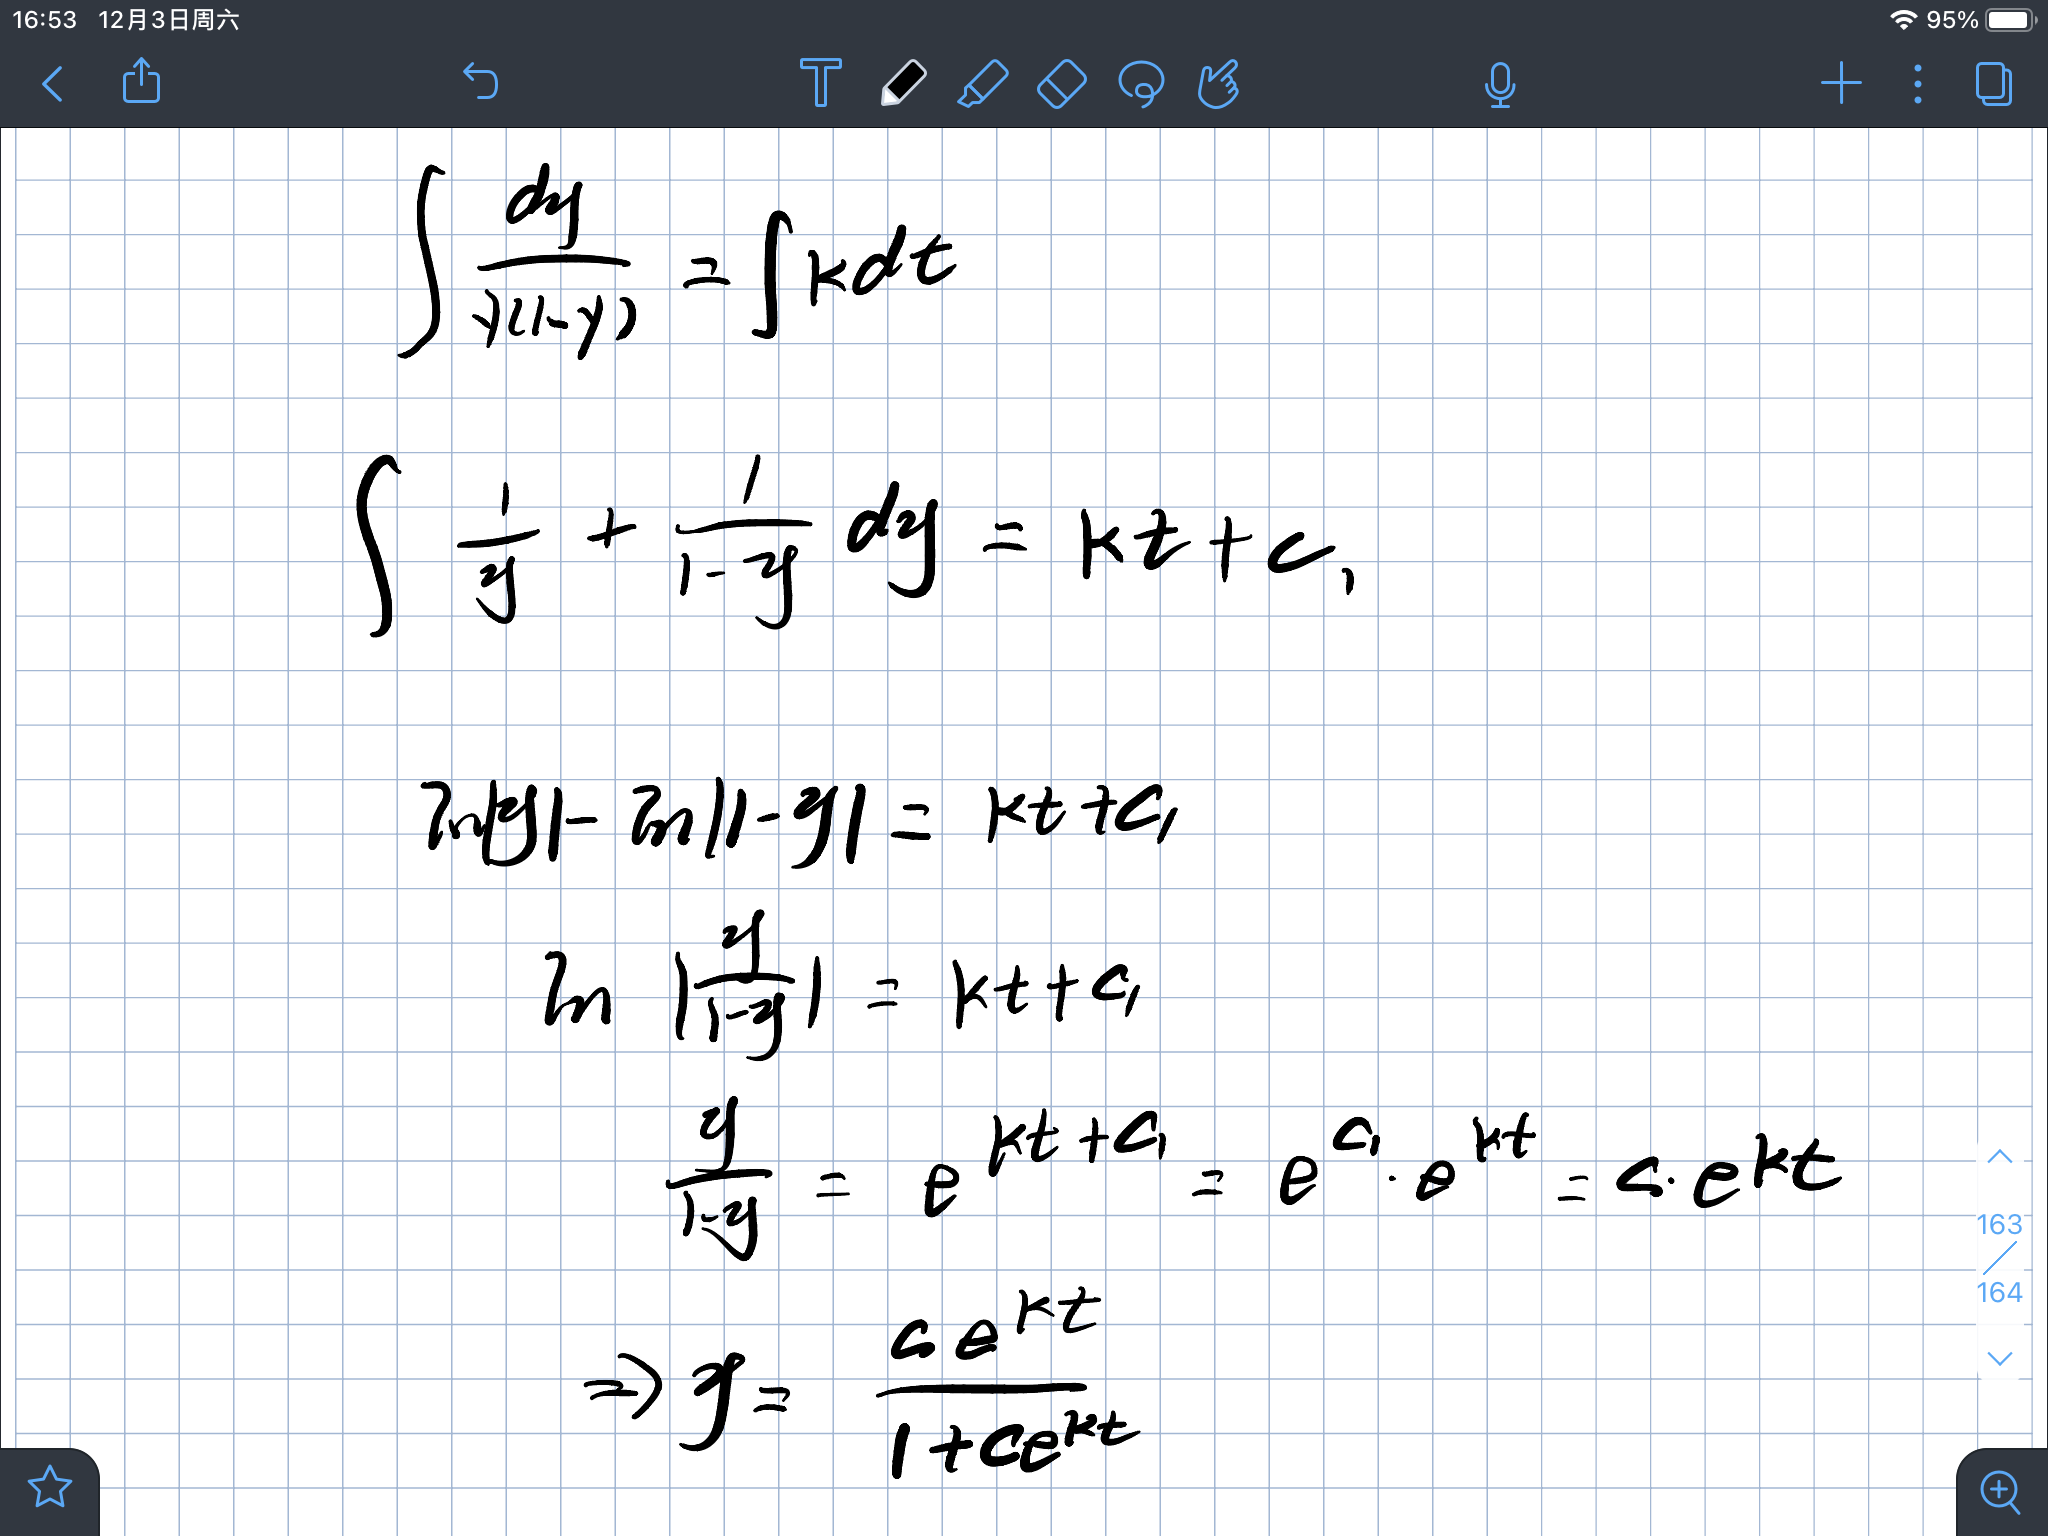 16:53 12月3日周六 95%
∫ dy/y(1-y) = ∫ kdt
∫ 1/y + 1/1-y dy = kt+c₁
ln|y| - ln|1-y| = kt+c₁
ln |y/1-y| = kt+c₁
y/1-y = e^kt+c₁ = e^c₁ · e^kt = c · e^kt
163
/
164
⇒ y = ce^kt/1+ce^kt